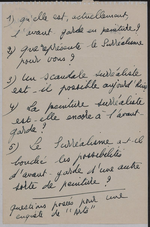 1) qu'elle est, actuellement,
l'avant garde en peinture?
2) que représente le Surréalisme
pour vous?
3) Un scandale surréaliste
est-il possible aujourd'hui?
4) La peinture surréaliste
est elle encore à l'avant-
garde?
5) Le Surréalisme a-t-il
bouché les possibilités
d'avant-garde d'une autre
sorte de peinture?
questions posées pour une
enquête de "Arts"